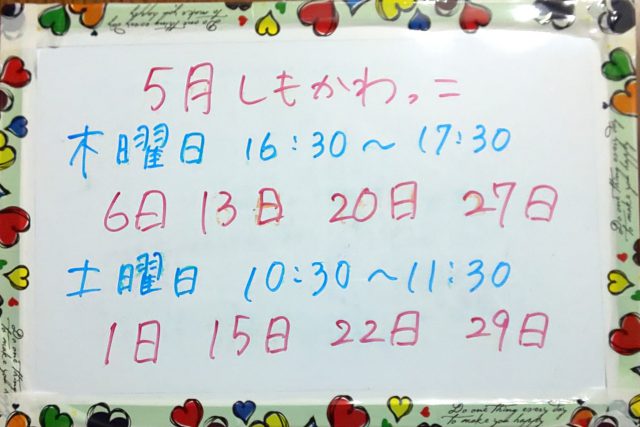 5月しもかわっこ
木曜日 16:30～17:30
6日 13日 20日 27日
土曜日 10:30～11:30
1日 15日 22日 29日
Do one thing every day
To make you happy